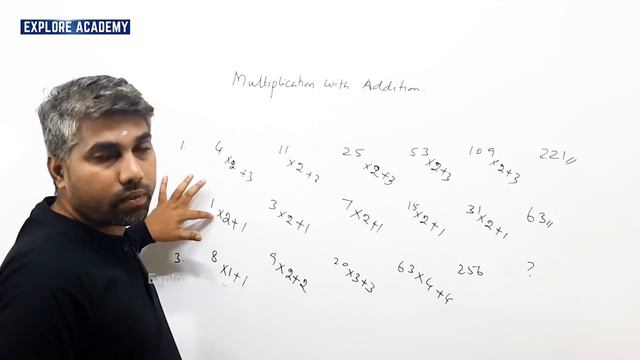 EXPLORE ACADEMY
Multiplication with Addition.
1. 4 x2+3 11 x2+3 25 x2+3 53 x2+3 109 x2+3 221,,
1 x2+1 3 x2+1 7 x2+1 15 x2+1 31 x2+1 63,,
3. 8 x1+1 9 x2+2 20 x3+3 63 x4+4 256 ?